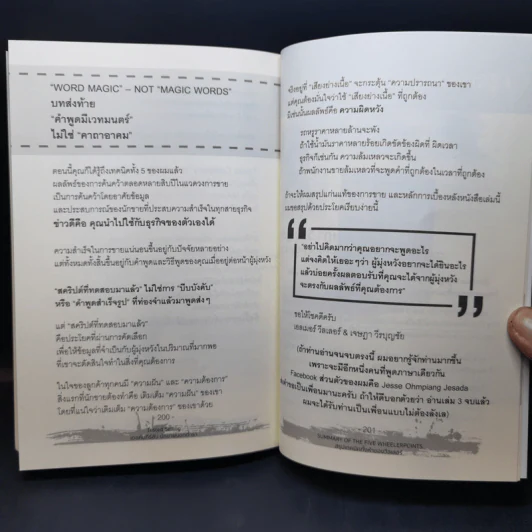 "WORD MAGIC" – NOT "MAGIC WORDS"
บทส่งท้าย
"คำพูดมีเวทมนตร์"
ไม่ใช่ "คาถาอาคม"
ตอนนี้คุณก็ได้รู้ถึงเทคนิคทั้ง 5 ของผมแล้ว
ผลลัพธ์ของการค้นคว้าตลอดหลายสิบปีในแวดวงการขาย
เป็นการค้นคว้าโดยอาศัยข้อมูล
และประสบการณ์ของนักขายที่ประสบความสำเร็จในทุกสายธุรกิจ
ข่าวดีคือ คุณนำไปใช้กับธุรกิจของตัวเองได้
ความสำเร็จในการขายแน่นอนขึ้นอยู่กับปัจจัยหลายอย่าง
แต่ทั้งหมดทั้งสิ้นขึ้นอยู่กับคำพูดและวิธีพูดของคุณเมื่ออยู่ต่อหน้าผู้มุ่งหวัง
"สคริปต์ที่ทดสอบมาแล้ว" ไม่ใช่การ "บีบบังคับ"
หรือ "คำพูดสำเร็จรูป" ที่ท่องจำแล้วมาพูดส่งๆ
แต่ "สคริปต์ที่ทดสอบมาแล้ว"
คือประโยคที่ผ่านการคัดเลือก
เพื่อให้ข้อมูลที่จำเป็นกับผู้มุ่งหวังในปริมาณที่มากพอ
ที่เขาจะตัดสินใจทำในสิ่งที่คุณต้องการ
ในใจของลูกค้าทุกคนมี "ความฝัน" และ "ความต้องการ"
สิ่งแรกที่นักขายต้องทำคือ เติมเต็ม "ความฝัน" ของเขา
โดยที่แน่ใจว่าเติมเต็ม "ความต้องการ" ของเขาด้วย
- 200 -
จริงอยู่ที่ "เสียงย่างเนื้อ" จะกระตุ้น "ความปรารถนา" ของเขา
แต่คุณต้องมั่นใจว่าใช้ "เสียงย่างเนื้อ" ที่ถูกต้อง
มิเช่นนั้นผลลัพธ์คือ ความผิดหวัง
รถหรูราคาหลายล้านจะพัง
ถ้าใช้น้ำมันราคาหลายร้อยเกิดขัดข้องผิดที่ ผิดเวลา
ธุรกิจก็เช่นกัน ความล้มเหลวจะเกิดขึ้น
ถ้าพนักงานขายล้มเหลวที่จะพูดคำที่ถูกต้องในเวลาที่ถูกต้อง
ถ้าจะให้ผมสรุปแก่นแท้ของการขาย และหลักการเบื้องหลังหนังสือเล่มนี้
ผมขอสรุปด้วยประโยคเรียบง่ายนี้
"อย่าไปคิดมากว่าคุณอยากจะพูดอะไร
แต่จงคิดให้เยอะๆ ว่า ผู้มุ่งหวังอยากจะได้ยินอะไร
แล้วบ่อยครั้งผลตอบรับที่คุณจะได้จากผู้มุ่งหวัง
จะตรงกับผลลัพธ์ที่คุณต้องการ"
ขอให้โชคดีครับ
เอลเมอร์ วีลเลอร์ & เจษฎา วีรบุญชัย
(ถ้าท่านอ่านจนจบตรงนี้ ผมอยากรู้จักท่านมากขึ้น
เพราะจะมีอีกหนึ่งคนที่พูดภาษาเดียวกัน
Facebook ส่วนตัวของผมคือ Jesse Ohmpiang Jesada
ขอเป็นเพื่อนมานะครับ ถ้าให้ดีบอกด้วยว่า อ่านเล่ม 3 จบแล้ว
ผมจะได้รับท่านเป็นเพื่อนแบบไม่ต้องลังเล)
- 201 -
SUMMARY OF THE FIVE WHEELERPOINTS